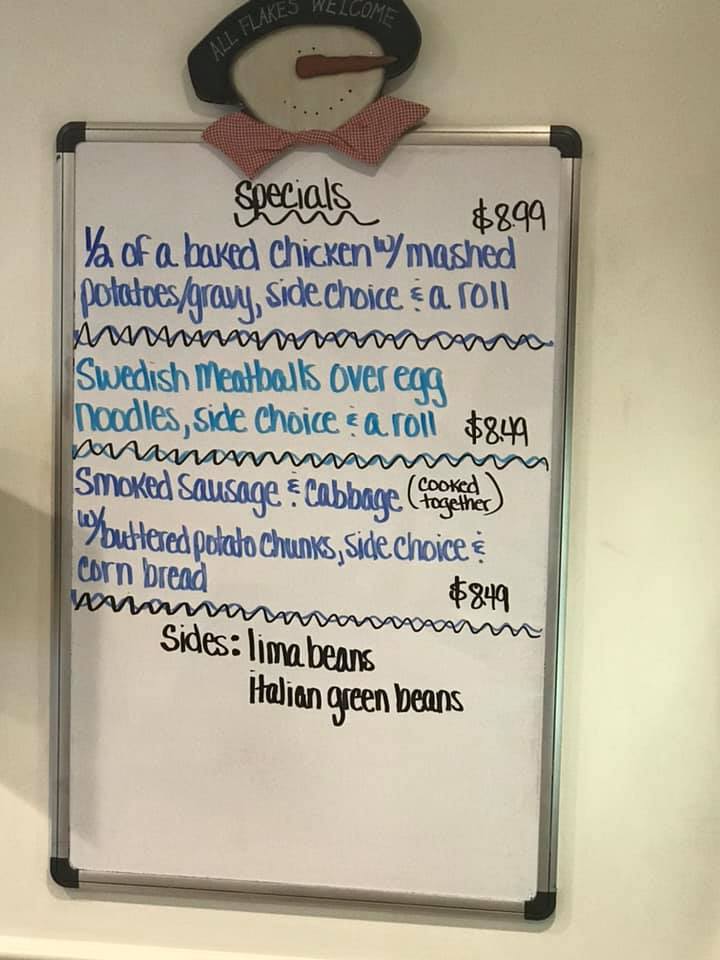 ALL FLAKES WELCOME
Specials
$8.99
1/2 of a baked chicken w/ mashed
potatoes/gravy, side choice & a roll
Swedish Meatballs over egg
noodles, side choice & a roll $8.49
Smoked Sausage & Cabbage (cooked
together)
w/buttered potato chunks, side choice &
corn bread
$8.49
Sides: lima beans
italian green beans